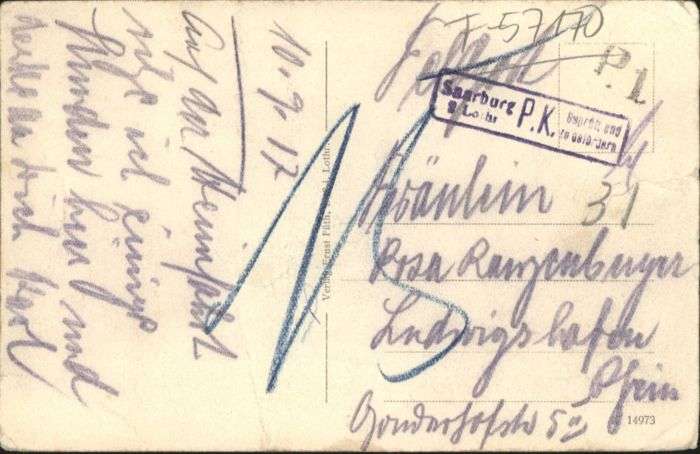 10.9.17
Auf der Heimfahrt
sitze ich einige
Stunden hier und
denke an Dich Karl
F-57170
Feldpost
P.L
Saarburg
i. Lothr
P.K.
Geprüft und
zu befördern
15
Fräulein
31
Rosa Ranzenberger
Ludwigshafen
Rhein
Gonderhofstr 5a
Verlag Ernst Lothr.
14973